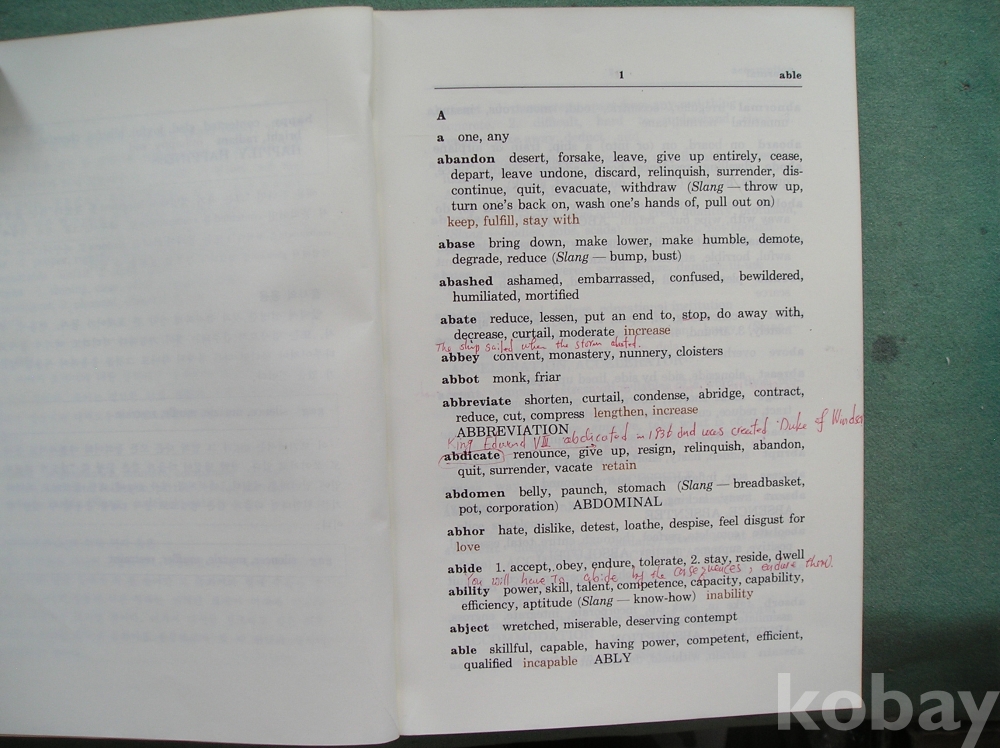 1 able
A
a one, any
abandon desert, forsake, leave, give up entirely, cease,
depart, leave undone, discard, relinquish, surrender, dis-
continue, quit, evacuate, withdraw (Slang — throw up,
turn one's back on, wash one's hands of, pull out on)
keep, fulfill, stay with
abase bring down, make lower, make humble, demote,
degrade, reduce (Slang — bump, bust)
abashed ashamed, embarrassed, confused, bewildered,
humiliated, mortified
abate reduce, lessen, put an end to, stop, do away with,
decrease, curtail, moderate increase
The ship sailed when the storm abated.
abbey convent, monastery, nunnery, cloisters
abbot monk, friar
abbreviate shorten, curtail, condense, abridge, contract,
reduce, cut, compress lengthen, increase
ABBREVIATION
King Edward VIII abdicated in 1936 and was created Duke of Windsor
abdicate renounce, give up, resign, relinquish, abandon,
quit, surrender, vacate retain
abdomen belly, paunch, stomach (Slang — breadbasket,
pot, corporation) ABDOMINAL
abhor hate, dislike, detest, loathe, despise, feel disgust for
love
abide 1. accept, obey, endure, tolerate, 2. stay, reside, dwell
You will have to abide by the consequences, endure them.
ability power, skill, talent, competence, capacity, capability,
efficiency, aptitude (Slang — know-how) inability
abject wretched, miserable, deserving contempt
able skillful, capable, having power, competent, efficient,
qualified incapable ABLY
kobay